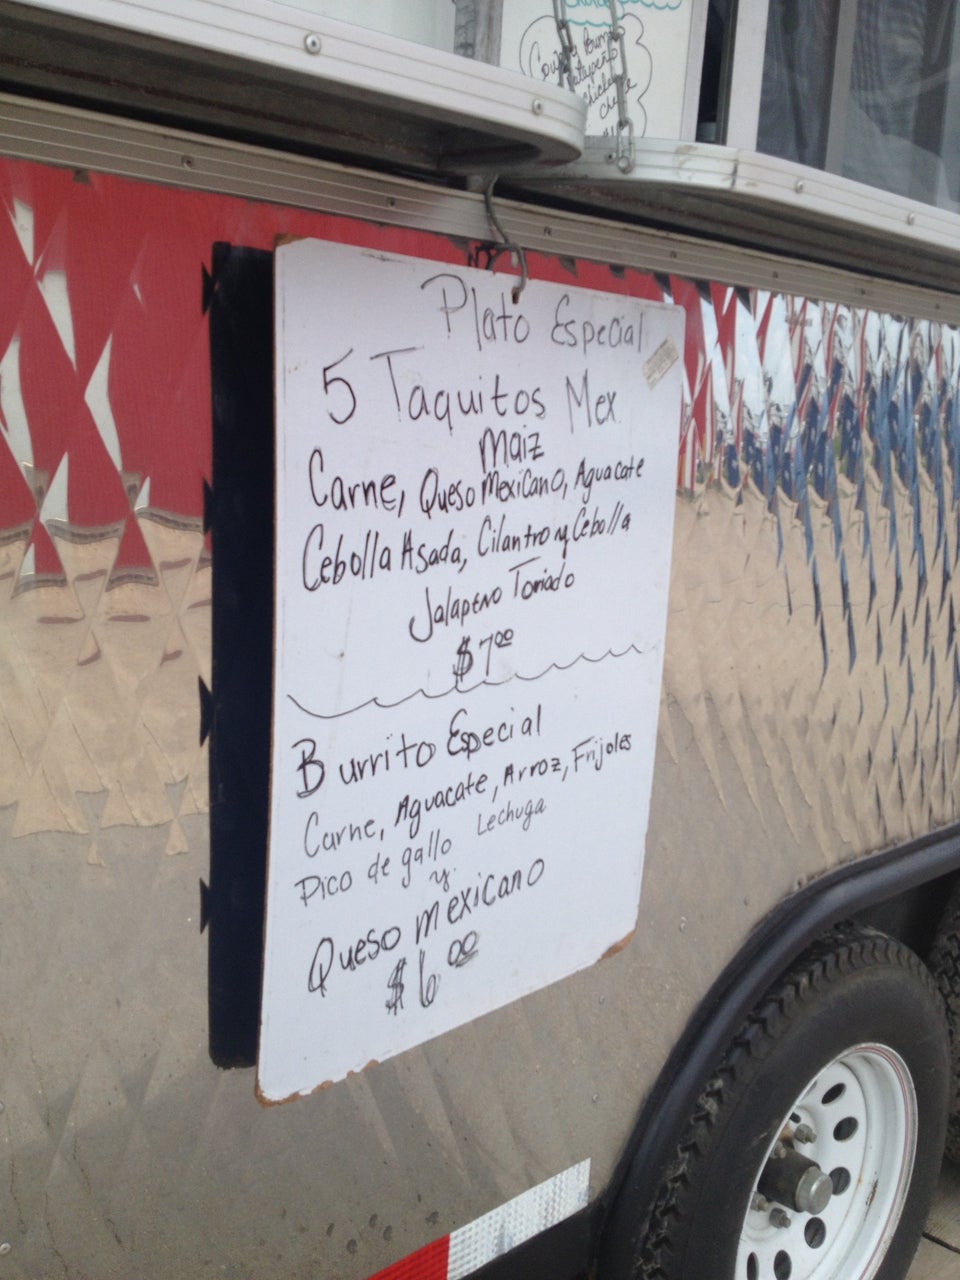 Jalapeño
chicken
cheese
Plato Especial
5 Taquitos Mex.
Maiz
Carne, Queso Mexicano, Aguacate
Cebolla Asada, Cilantro y Cebolla
Jalapeno Toriado
$7.00
Burrito Especial
Carne, Aguacate, Arroz, Frijoles
Pico de gallo Lechuga
y.
Queso mexicano
$6.00